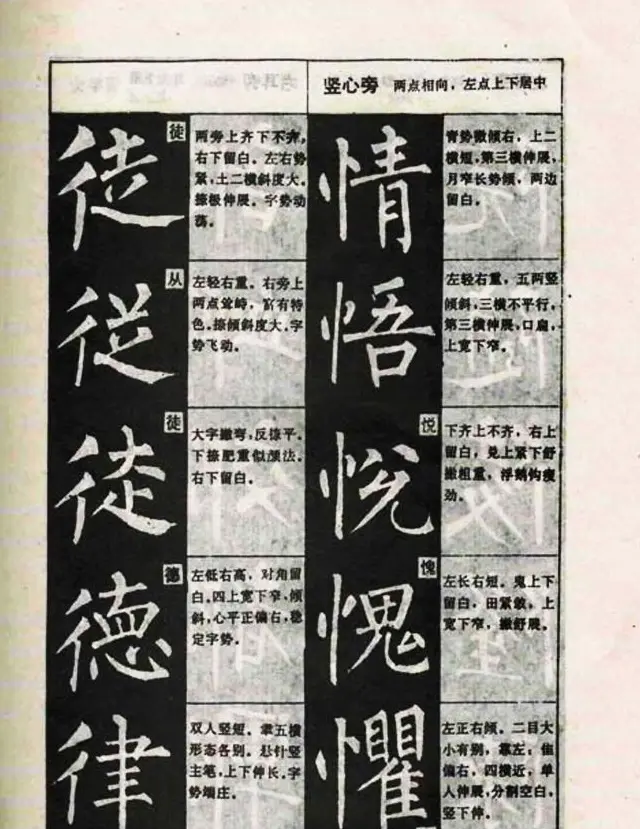 徒
徒
两旁上齐下不齐，
右下留白。左右势
紧，土二横斜度大。
捺极伸展。字势动
荡。
從
从
左轻右重。右旁上
两点耸峙，富有特
色。捺倾斜度大。字
势飞动。
徒
徒
大字撇弯，反捺平。
下捺肥重似颜法。
右下留白。
德
德
左低右高，对角留
白。四上宽下窄，倾
斜，心平正偏右，稳
定字势。
律
双人竖短。聿五横
形态各别。悬针竖
主笔，上下伸长。字
势端庄。
竖心旁 两点相向，左点上下居中
情
青势微倾右，上二
横短，第三横伸展，
月窄长势倾，两边
留白。
悟
左轻右重，五两竖
倾斜，三横不平行，
第三横伸展，口扁，
上宽下窄。
悦
悦
下齐上不齐，右上
留白，兑上紧下舒
撇粗重，浮鹅钩瘦
劲。
愧
愧
左长右短。鬼上下
留白，田紧敛，上
宽下窄，撇舒展。
懼
左正右倾。二目大
小有别，靠左；隹
偏右，四横近，单
人伸展，分割空白，
竖下伸。